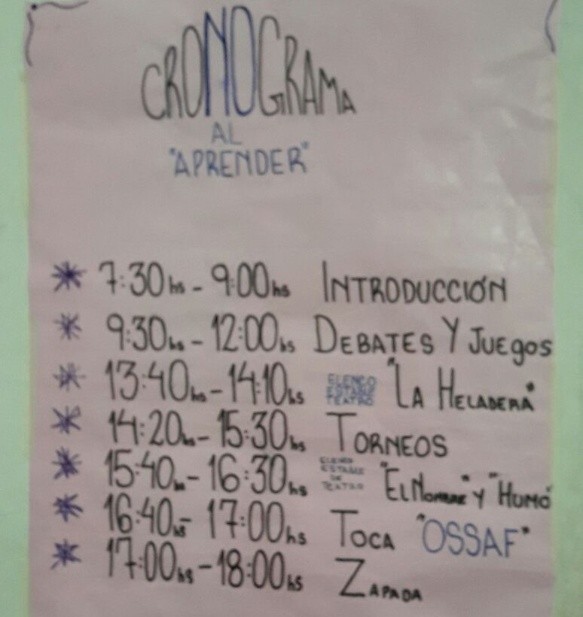 CRONOGRAMA
AL
"APRENDER"
* 7:30hs - 9:00hs INTRODUCCIÓN
* 9:30hs - 12:00hs DEBATES Y JUEGOS
* 13:40hs - 14:10hs ELENCO ESTABLE TEATRO "LA HELADERA"
* 14:20hs - 15:30hs TORNEOS
* 15:40hs - 16:30hs ELENCO ESTABLE DE TEATRO "EL NOMBRE" Y "HUMO"
* 16:40hs - 17:00hs TOCA "OSSAF"
* 17:00hs - 18:00hs ZAPADA